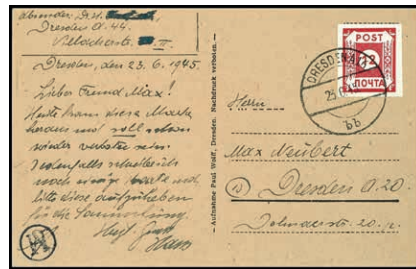 Absender: Dr. H.
Dresden A. 44.
Dresden, den 23.6.1945.
Lieber Freund Max!
Heute kam diese Marke
heraus und soll schon
wieder verboten sein.
Jedenfalls
noch einige und
bitte diese aufzuheben
für die Sammlung.
Hans
— Aufnahme Paul Wolff, Dresden. Nachdruck verboten. —
POST
12
ПОЧТА
DRESDEN A
bb
Herrn
Max Neubert
Dresden A. 20.
20.